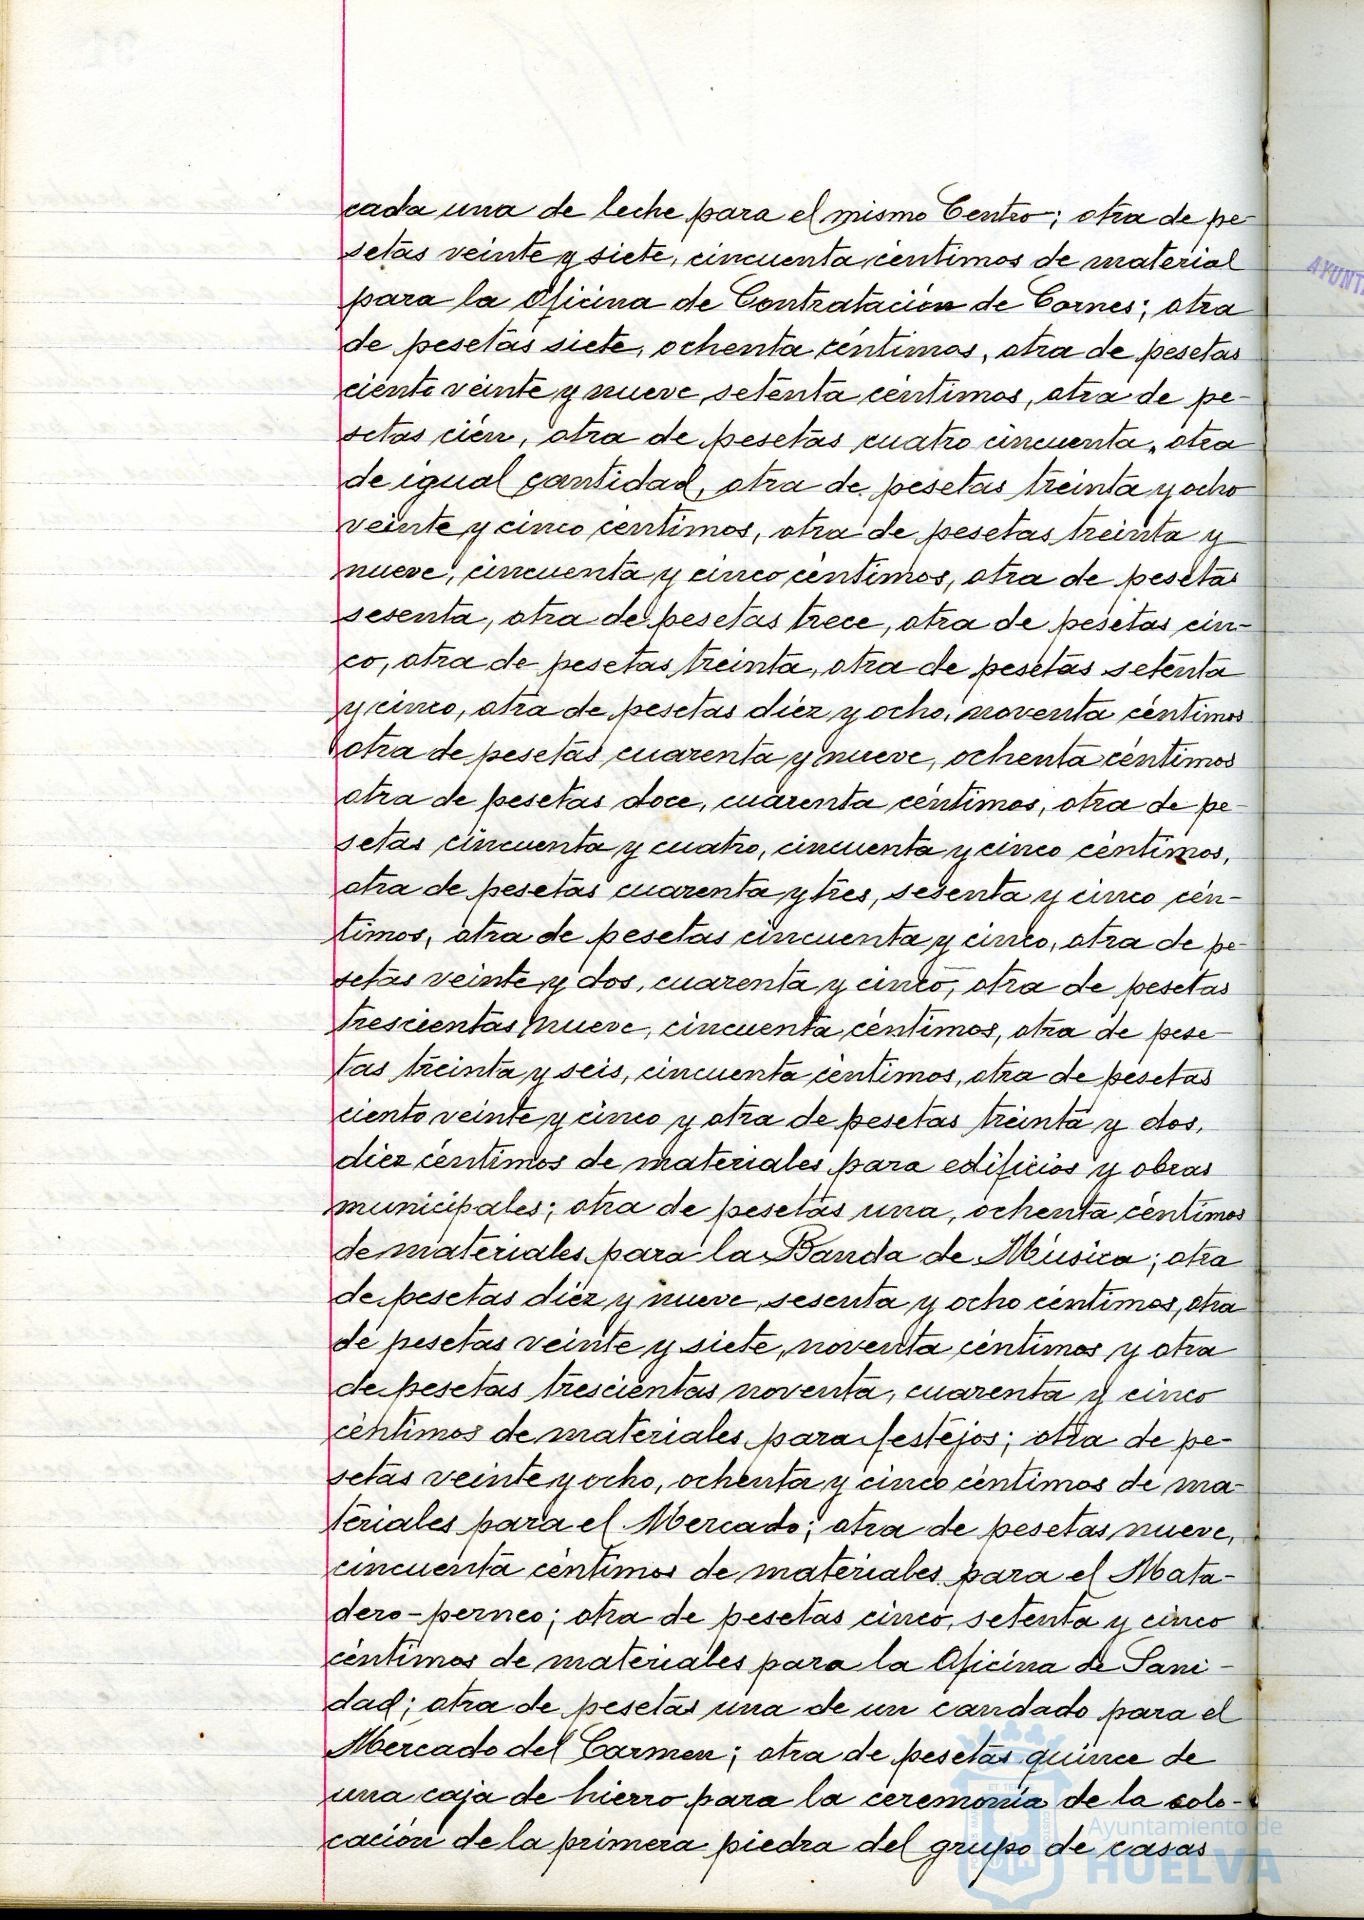 cada una de leche para el mismo Centro; otra de pe-
setas veinte y siete, cincuenta céntimos de material
para la Oficina de Contratación de Carnes; otra
de pesetas siete, ochenta céntimos, otra de pesetas
ciento veinte y nueve, setenta céntimos, otra de pe-
setas cién, otra de pesetas cuatro cincuenta, otra
de igual cantidad, otra de pesetas treinta y ocho
veinte y cinco céntimos, otra de pesetas treinta y
nueve, cincuenta y cinco céntimos, otra de pesetas
sesenta, otra de pesetas trece, otra de pesetas cin-
co, otra de pesetas treinta, otra de pesetas setenta
y cinco, otra de pesetas diéz y ocho, noventa céntimos
otra de pesetas cuarenta y nueve, ochenta céntimos
otra de pesetas doce, cuarenta céntimos, otra de pe-
setas cincuenta y cuatro, cincuenta y cinco céntimos,
otra de pesetas cuarenta y tres, sesenta y cinco cén-
timos, otra de pesetas cincuenta y cinco, otra de pe-
setas veinte y dos, cuarenta y cinco, otra de pesetas
trescientas nueve, cincuenta céntimos, otra de pese-
tas treinta y seis, cincuenta céntimos, otra de pesetas
ciento veinte y cinco y otra de pesetas treinta y dos,
diez céntimos de materiales para edificios y obras
municipales; otra de pesetas una, ochenta céntimos
de materiales para la Banda de Música; otra
de pesetas diéz y nueve, sesenta y ocho céntimos, otra
de pesetas veinte y siete, noventa céntimos y otra
de pesetas trescientas noventa, cuarenta y cinco
céntimos de materiales para festejos; otra de pe-
setas veinte y ocho, ochenta y cinco céntimos de ma-
teriales para el Mercado; otra de pesetas nueve,
cincuenta céntimos de materiales para el Mata-
dero-perneo; otra de pesetas cinco, setenta y cinco
céntimos de materiales para la Oficina de Sani-
dad; otra de pesetas una de un candado para el
Mercado del Carmen; otra de pesetas quince de
una caja de hierro para la ceremonia de la colo-
cación de la primera piedra del grupo de casas
Ayuntamiento de
HUELVA